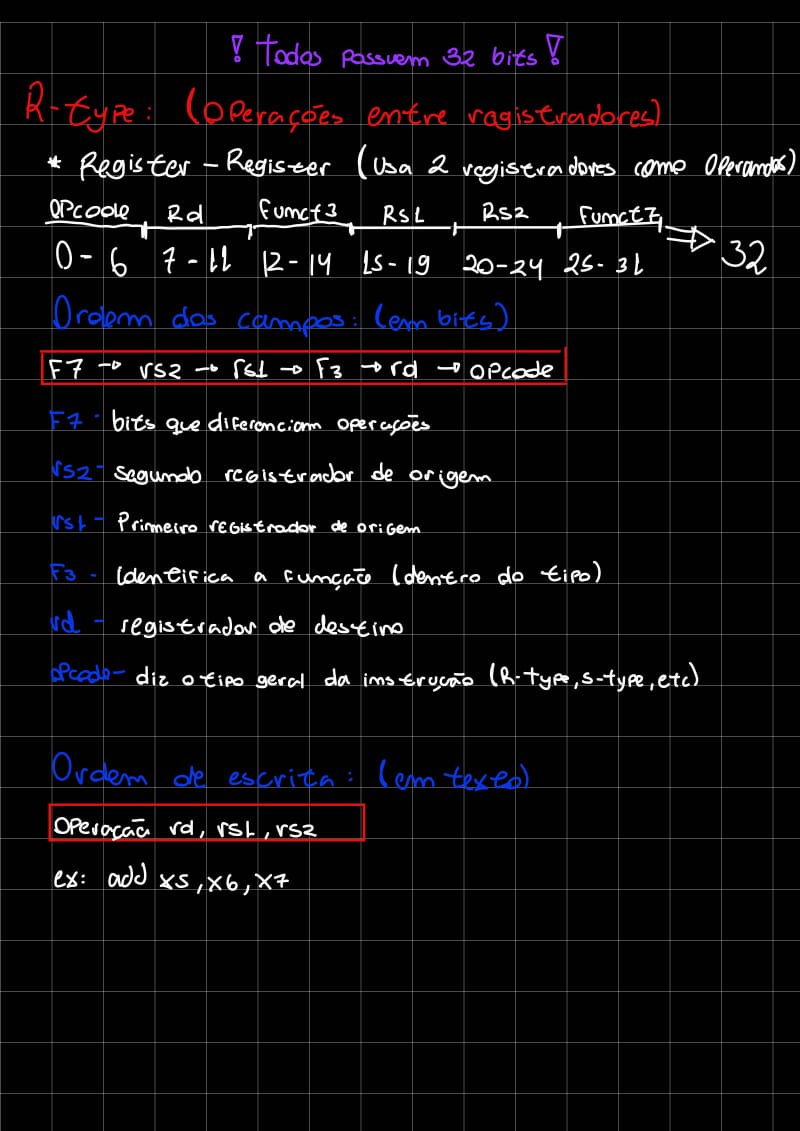 ! Todos possuem 32 bits !
R-type: (Operações entre ragistradores)
* Register-Register (Usa 2 registradores como Operandos)
OPcode Rd Funct3 Rs1 Rs2 Funct7
0-6 7-11 12-14 15-19 20-24 25-31 => 32
Ordem dos campos: (em bits)
F7 → rs2 → rs1 → F3 → rd → opcode
F7 - bits que diferenciam operações
rs2 - segundo registrador de origem
rs1 - Primeiro registrador de origem
F3 - Identifica a função (dentro do tipo)
rd - registrador de destino
opcode - diz o tipo geral da instrução (R-type, S-type, etc)
Ordem de escrita: (em texto)
Operação rd, rs1, rs2
ex: add x5, x6, x7